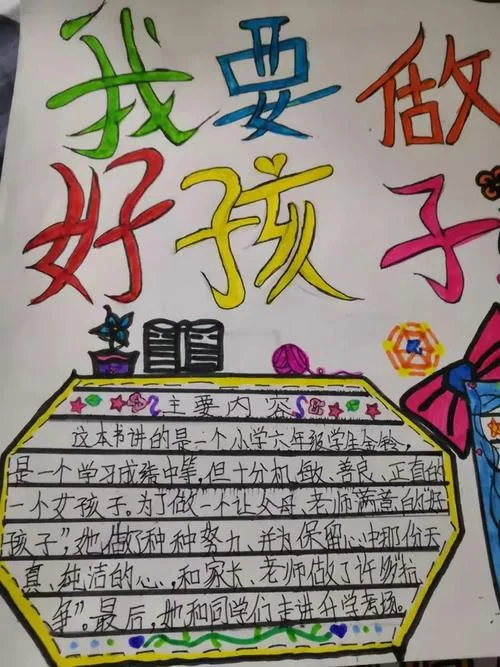 我要做
好孩子
主要内容
这本书讲的是一个小学六年级学生金铃,
是一个学习成绩中等,但十分机敏、善良、正直的
一个女孩子。为了做一个让父母、老师满意的"好
孩子",她做了种种努力、并为保留心中那份天
真、纯洁的心,和家长、老师做了许多"抗
争"。最后,她和同学们走进升学考场。